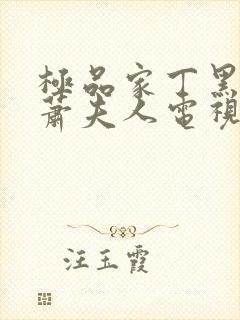 極品家丁黑
蕭夫人電視
汪玉霞